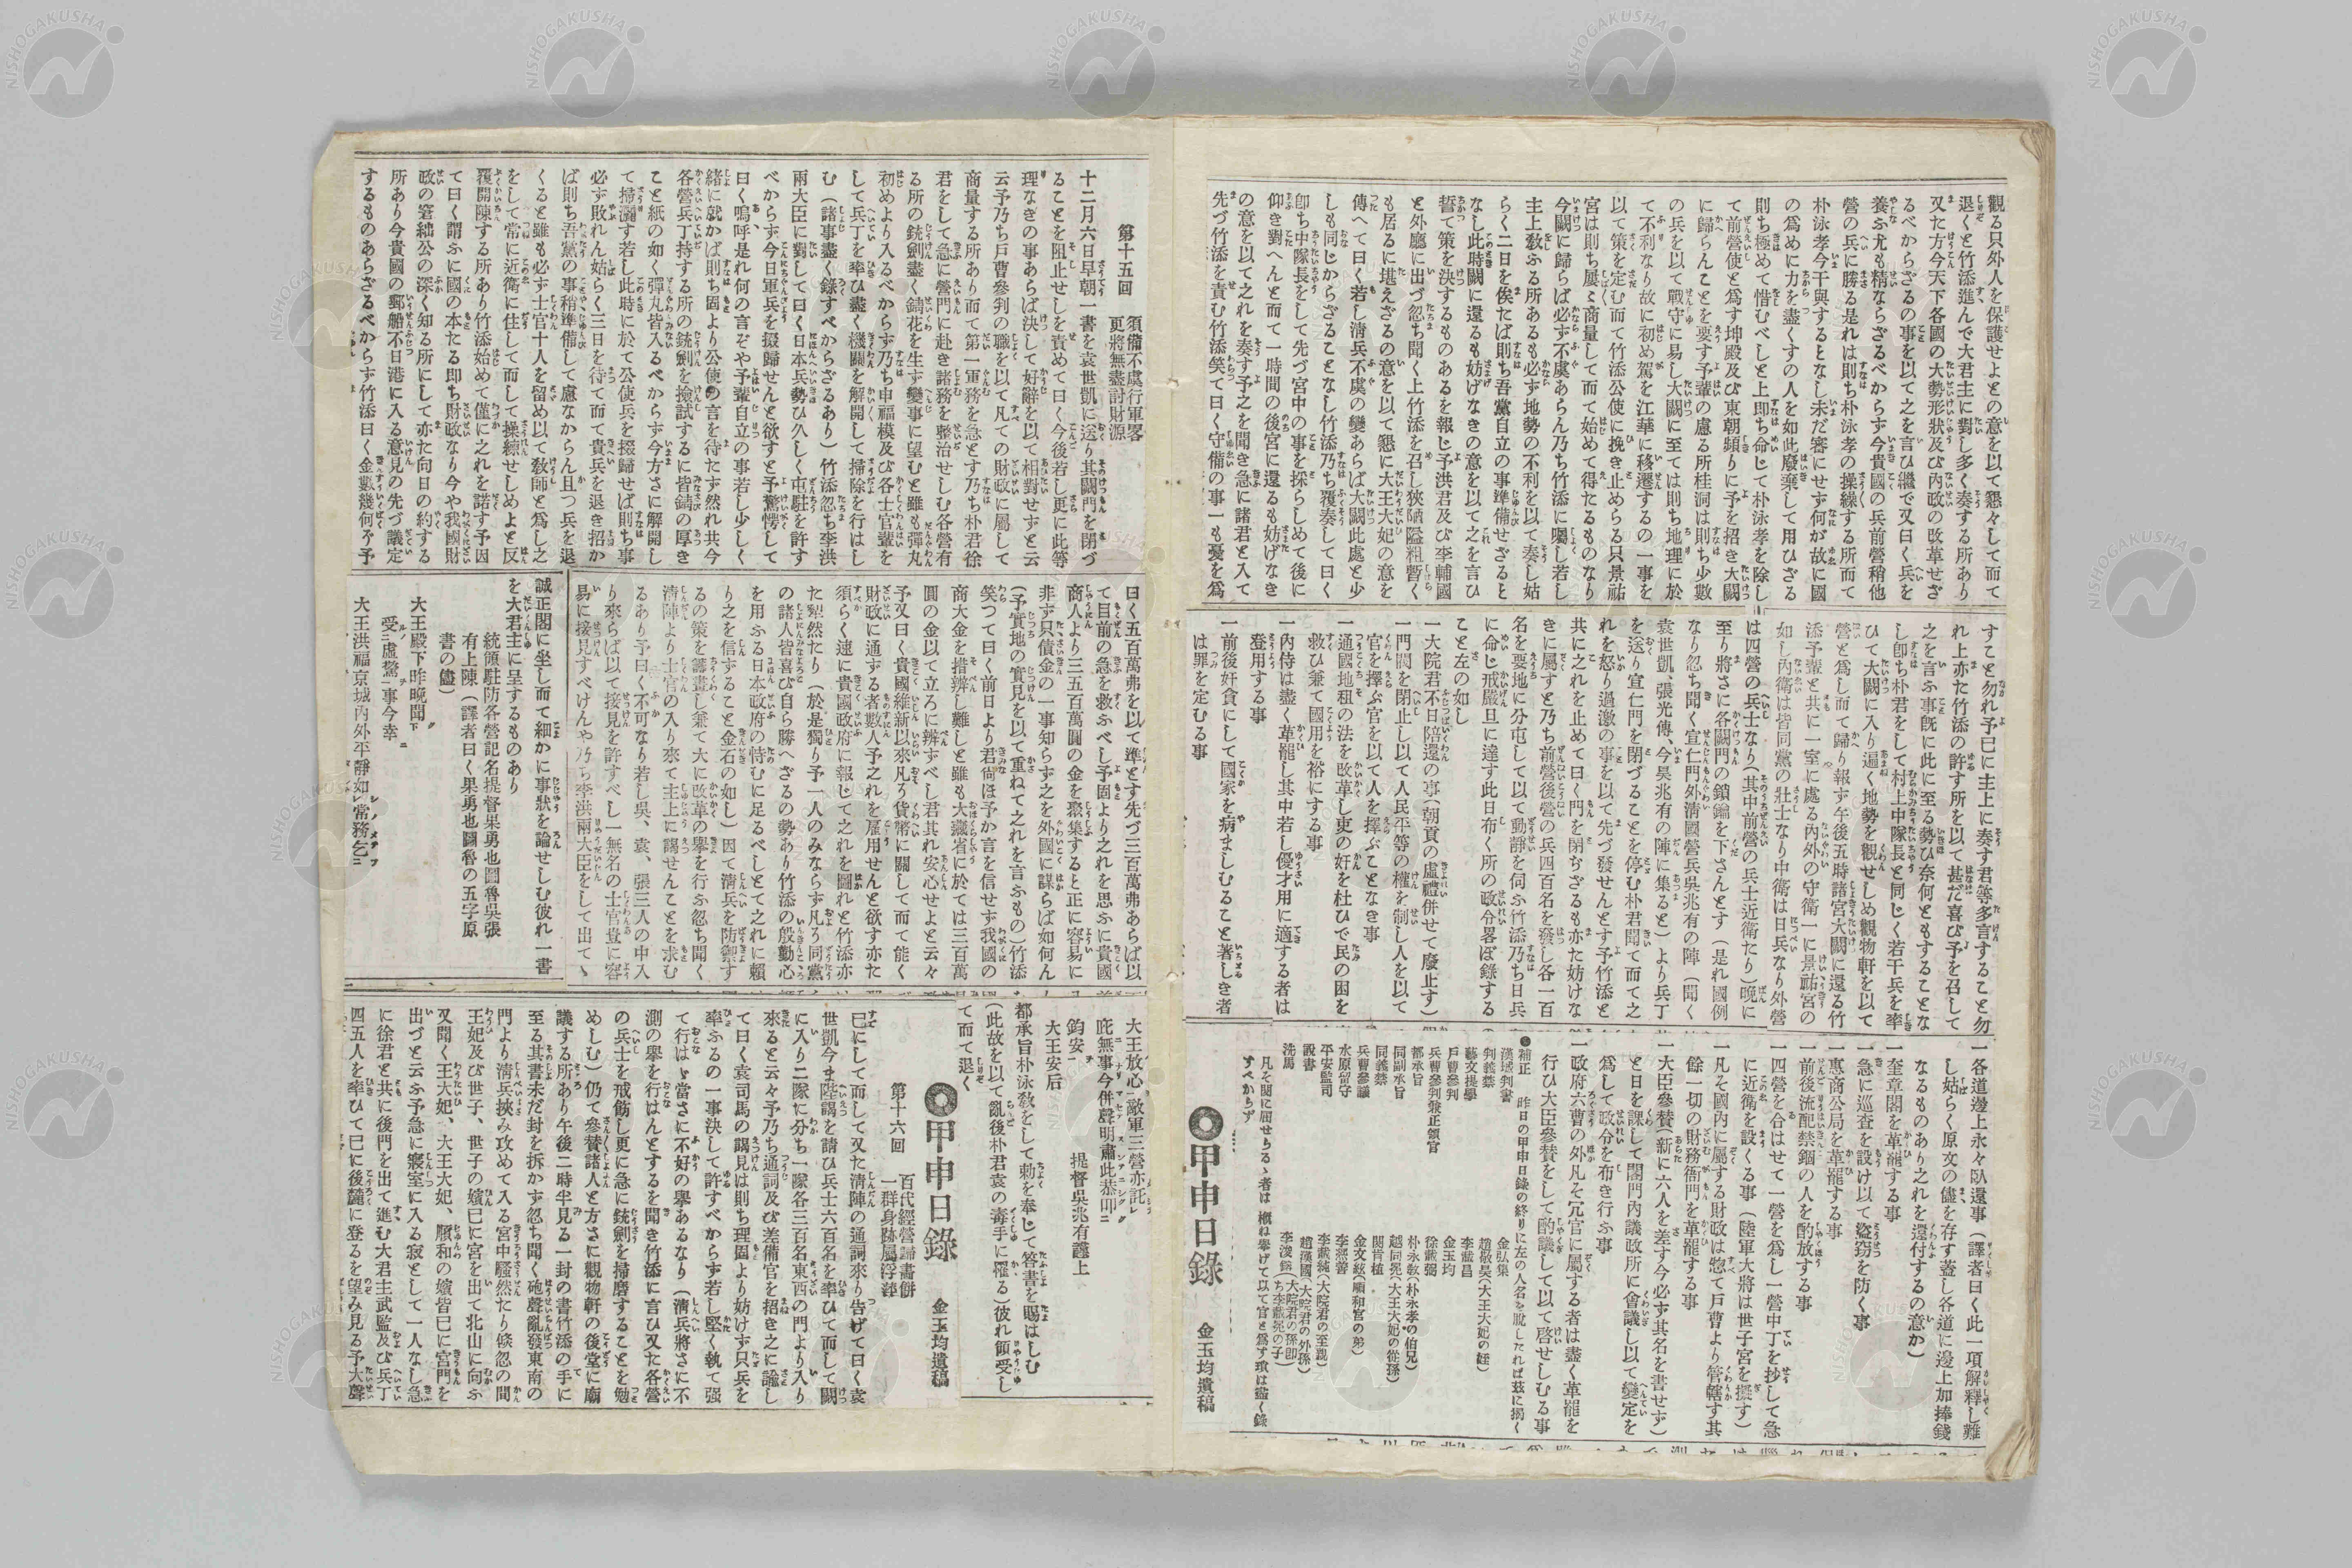 觀る只外人を保護せよとの意を以て懇々して而て
退くと竹添進んで大君主に對し多く奏する所あり
又た方今天下各國の大勢形狀及び内政の改革せざ
るべからざるの事を以て之を言ひ繼で又曰く兵を
養ふ尤も精ならざるべからず今貴國の兵前營稍他
營の兵に勝る是れは則ち朴泳孝の操練する所而て
朴泳孝今干與するとなし未だ審にせず何が故に國
の爲めに力を盡くすの人を如此廢棄して用ひざる
則ち極めて惜むべしと上即ち命じて朴泳孝を除し
て前營使と爲す坤殿及び東朝頻りに予を招き大闕
に歸らんことを要す予輩の慮る所桂洞は則ち少數
の兵を以て戰守に易し大闕に至ては則ち地理に於
て不利なり故に初め駕を江華に移遷するの一事を
以て策を定む而て竹添公使に挽き止めらる只景祐
宮は則ち屢〻商量して而て始めて得たるものなり
今闕に歸らば必ず不虞あらん乃ち竹添に囑し若し
主上敎ふる所あるも必ず地勢の不利を以て奏し姑
らく二日を俟たば則ち吾黨自立の事準備せざると
なし此時闕に還るも妨げなきの意を以て之を言ひ
誓て策を決するものあるを報じ予洪君及び李輔國
と外廳に出づ忽ち聞く上竹添を召し狹陋隘粗暫く
も居るに堪えざるの意を以て懇に大王大妃の意を
傳へて曰く若し清兵不虞の變あらば大闕此處と少
しも同じからざることなし竹添乃ち覆奏して曰く
卽ち中隊長をして先づ宮中の事を探らしめて後に
仰き對へんと而て一時間の後宮に還るも妨げなき
の意を以て之れを奏す予之を聞き急に諸君と入て
先づ竹添を責む竹添笑て曰く守備の事一も憂を爲
すこと勿れ予已に主上に奏す君等多言すること勿
れ上亦た竹添の許す所を以て甚だ喜び予を召して
之を言ふ事既に此に至る勢ひ奈何ともすることな
し卽ち朴君をして村上中隊長と同じく若干兵を率
ひて大闕に入り遍く地勢を觀せしめ觀物軒を以て
營と爲し而て歸り報ず午後五時諸宮大闕に還る竹
添予輩と共に一室に處る内外の守衛一に景祐宮の
如し内衛は皆同黨の壯士なり中衛は日兵なり外營
は四營の兵士なり(其中前營の兵士近衛たり)晩に
至り將さに各闕門の鎖鑰を下さんとす(是れ國例
なり忽ち聞く宣仁門外清國營兵吳兆有の陣(聞く
袁世凱、張光傳、今吳兆有の陣に集ると)より兵丁
を送り宣仁門を閉づることを停む朴君聞て而て之
れを怒り過激の事を以て先づ發せんとす予竹添と
共に之れを止めて曰く門を閉ぢざるも亦た妨けな
きに屬すと乃ち前營後營の兵四百名を發し各一百
名を要地に分屯して以て動靜を伺ふ竹添乃ち日兵
に命じ戒嚴旦に達す此日布く所の政令畧ぼ錄する
こと左の如し
一大院君不日陪還の事(朝貢の虛禮併せて廢止す)
一門閥を閉止し以て人民平等の權を制し人を以て
官を擇ぶ官を以て人を擇ぶことなき事
一通國地租の法を改革し吏の奸を杜ひで民の困を
救ひ兼て國用を裕にする事
一内侍は盡く革罷し其中若し優才用に適する者は
登用する事
一前後奸貪にして國家を病ましむること著しき者
は罪を定むる事
一各道還上永々臥還事(譯者曰く此一項解釋し難
し姑らく原文の儘を存す蓋し各道に還上加捧錢
なるものあり之れを還付するの意か)
一奎章閣を革罷する事
一急に巡査を設け以て盜窃を防く事
一惠商公局を革罷する事
一前後流配禁錮の人を酌放する事
一四營を合はせて一營を爲し一營中丁を抄して急
に近衛を設くる事(陸軍大將は世子宮を擬す)
一凡そ國内に屬する財政は惣て戶曹より管轄す其
餘一切の財務衙門を革罷する事
一大臣參賛(新に六人を差す今必ず其名を書せず)
と日を課して閤門内議政所に會議し以て變定を
爲して政令を布き行ふ事
一政府六曹の外凡そ冗官に屬する者は盡く革罷を
行ひ大臣參賛をして酌議して以て啓せしむる事
●補正 昨日の甲申日錄の終りに左の人名を脫したれば玆に揭く
漢城判書 金弘集
判義禁 趙敬昊(大王大妃の姪)
藝文提學 李載昌
戶曹參判 金玉均
兵曹參判兼正領官 徐載弼
都承旨 朴永敎(朴永孝の伯兄)
同副承旨 趙同冕(大王大妃の從孫)
同義禁 閔肯植
兵曹參議 金文鉉(順和宮の弟)
水原留守 李熙善
平安監司 李載純(大院君の至親)
說書 趙漢國(大院君の外孫)
洗馬 李埈鎔(大院君の孫卽ち李載冕の子)
凡そ闕に屆せらるゝ者は槪ね擧げて以て官と爲す瑣は盡く錄
すべからず
◎甲申日錄 金玉均遺稿
第十五回 須備不虞行軍畧
更將無盡討財源
十二月六日早朝一書を袁世凱に送り其闕門を閉づ
ることを阻止せしを責めて曰く今後若し更に此等
理なきの事あらば決して好辭を以て相對せずと云
云予乃ち戶曹參判の職を以て凡ての財政に屬して
商量する所あり而て第一軍務を急とす乃ち朴君徐
君をして急に營門に赴き諸務を整治せしむ各營有
る所の銃劍盡く鏽花を生ず變事に望むと雖も彈丸
初めより入るべからず乃ち申福模及び各士官輩を
して兵丁を率ひ盡く機關を解開して掃除を行はし
む(諸事盡く錄すべからざるあり)竹添忽ち李洪
兩大臣に對して曰く日本兵勢ひ久しく屯駐を許す
べからず今日軍兵を掇歸せんと欲すと予驚愕して
曰く嗚呼是れ何の言ぞや予輩自立の事若し少しく
緒に就かば則ち固より公使の言を待たず然れ共今
各營兵丁持する所の銃劍を撿試するに皆鏽の厚き
こと紙の如く彈丸皆入るべからず今方さに解開し
て掃灑す若し此時に於て公使兵を掇歸せば則ち事
必ず敗れん姑らく三日を待て而て貴兵を退き招か
ば則ち吾黨の事稍準備して慮なからん且つ兵を退
くると雖も必ず士官十人を留め以て敎師と爲し之
をして常に近衛に住して而して操練せしめよと反
覆開陳する所あり竹添始めて僅に之れを諾す予因
て曰く謂ふに國の本たる卽ち財政なり今や我國財
政の窘絀公の深く知る所にして亦た向日の約する
所あり今貴國の郵船不日港に入る意見の先づ議定
するものあらざるべからず竹添曰く金數幾何ぞ予
曰く五百萬弗を以て準とす先づ三百萬弗あらば以
て目前の急を救ふべし予固より之れを思ふに貴國
商人より三五百萬圓の金を聚集すると正に容易に
非ず只債金の一事知らず之を外國に謀らば如何ん
(予實地の實見を以て重ねて之れを言ふもの)竹添
笑つて曰く前日より君尙ほ予か言を信せず我國の
商大金を措辨し難しと雖も大藏省に於ては三百萬
圓の金以て立ろに辨ずべし君其れ安心せよと云々
予又曰く貴國維新以來凡ろ貨幣に關して而て能く
財政に通ずる者數人予之れを雇用せんと欲す亦た
須らく速に貴國政府に報じて之れを圖れと竹添亦
た犂然たり(於是獨り予一人のみならず凡ろ同黨
の諸人皆喜び自ら勝へざるの勢あり竹添の殷勤心
を用ふる日本政府の恃むに足るべしとて之れに賴
り之を信ずること金石の如し)因て清兵を防禦す
るの策を籌畫し兼て大に改革の擧を行ふ忽ち聞く
清陣より士官の入り來て主上に謁せんことを求む
るあり予曰く不可なり若し吳、袁、張三人の中入
り來らば以て接見を許すべし一無名の士官豈に容
易に接見すべけんや乃ち李洪兩大臣をして出てゝ
誠正閣に坐して而て細かに事狀を論せしむ彼れ一書
を大君主に呈するものあり
統領駐防各營記名提督果勇巴圖魯吳張
有上陳(譯者曰く果勇巴圖魯の五字原
書の儘)
大王殿下昨晩聞下
受二虛驚一事今幸
大王洪福京城内外平靜如レ常務乞二
大王放心一敵軍三營亦託レ
庇無事今併聲明肅此恭叩二
鈞安一 提督吳兆有謹上
大王安后
都承旨朴泳敎をして勅を奉じて答書を賜はしむ
(此故を以て亂後朴君袁の毒手に罹る)彼れ領受し
て而て退く
◎甲申日錄 金玉均遺稿
第十六回 百代經營歸畫餠
一群身跡屬浮萍
已にして而して又た清陣の通詞來り告げて曰く袁
世凱今ま陛謁を請ひ兵士六百名を率ひて而して闕
に入り二隊に分ち一隊各三百名東西の門より入り
來ると云々予乃ち通詞及び差備官を招き之に諭し
て曰く袁司馬の謁見は則ち理固より妨けず只兵を
率ふるの一事決して許すべからず若し堅く執て强
て行はゞ當さに不好の擧あるなり(清兵將さに不
測の擧を行はんとするを聞き竹添に言ひ又た各營
の兵士を戒飭し更に急に銃劍を掃磨することを勉
めしむ)仍て參賛諸人と方さに觀物軒の後堂に廟
議する所あり午後二時半見る一封の書竹添の手に
至る其書未だ封を拆かず忽ち聞く砲聲亂發東南の
門より清兵挾み攻めて入る宮中騷然たり倏忽の間
王妃及び世子、世子の嬪已に宮を出て北山に向ふ
又聞く王大妃、大王大妃、順和の嬪皆已に宮門を
出づと云ふ予急に寢室に入る寂として一人なし急
に徐君と共に後門を出て進む大君主武監及び兵丁
四五人を率ひて已に後麓に登るを望み見る予大聲